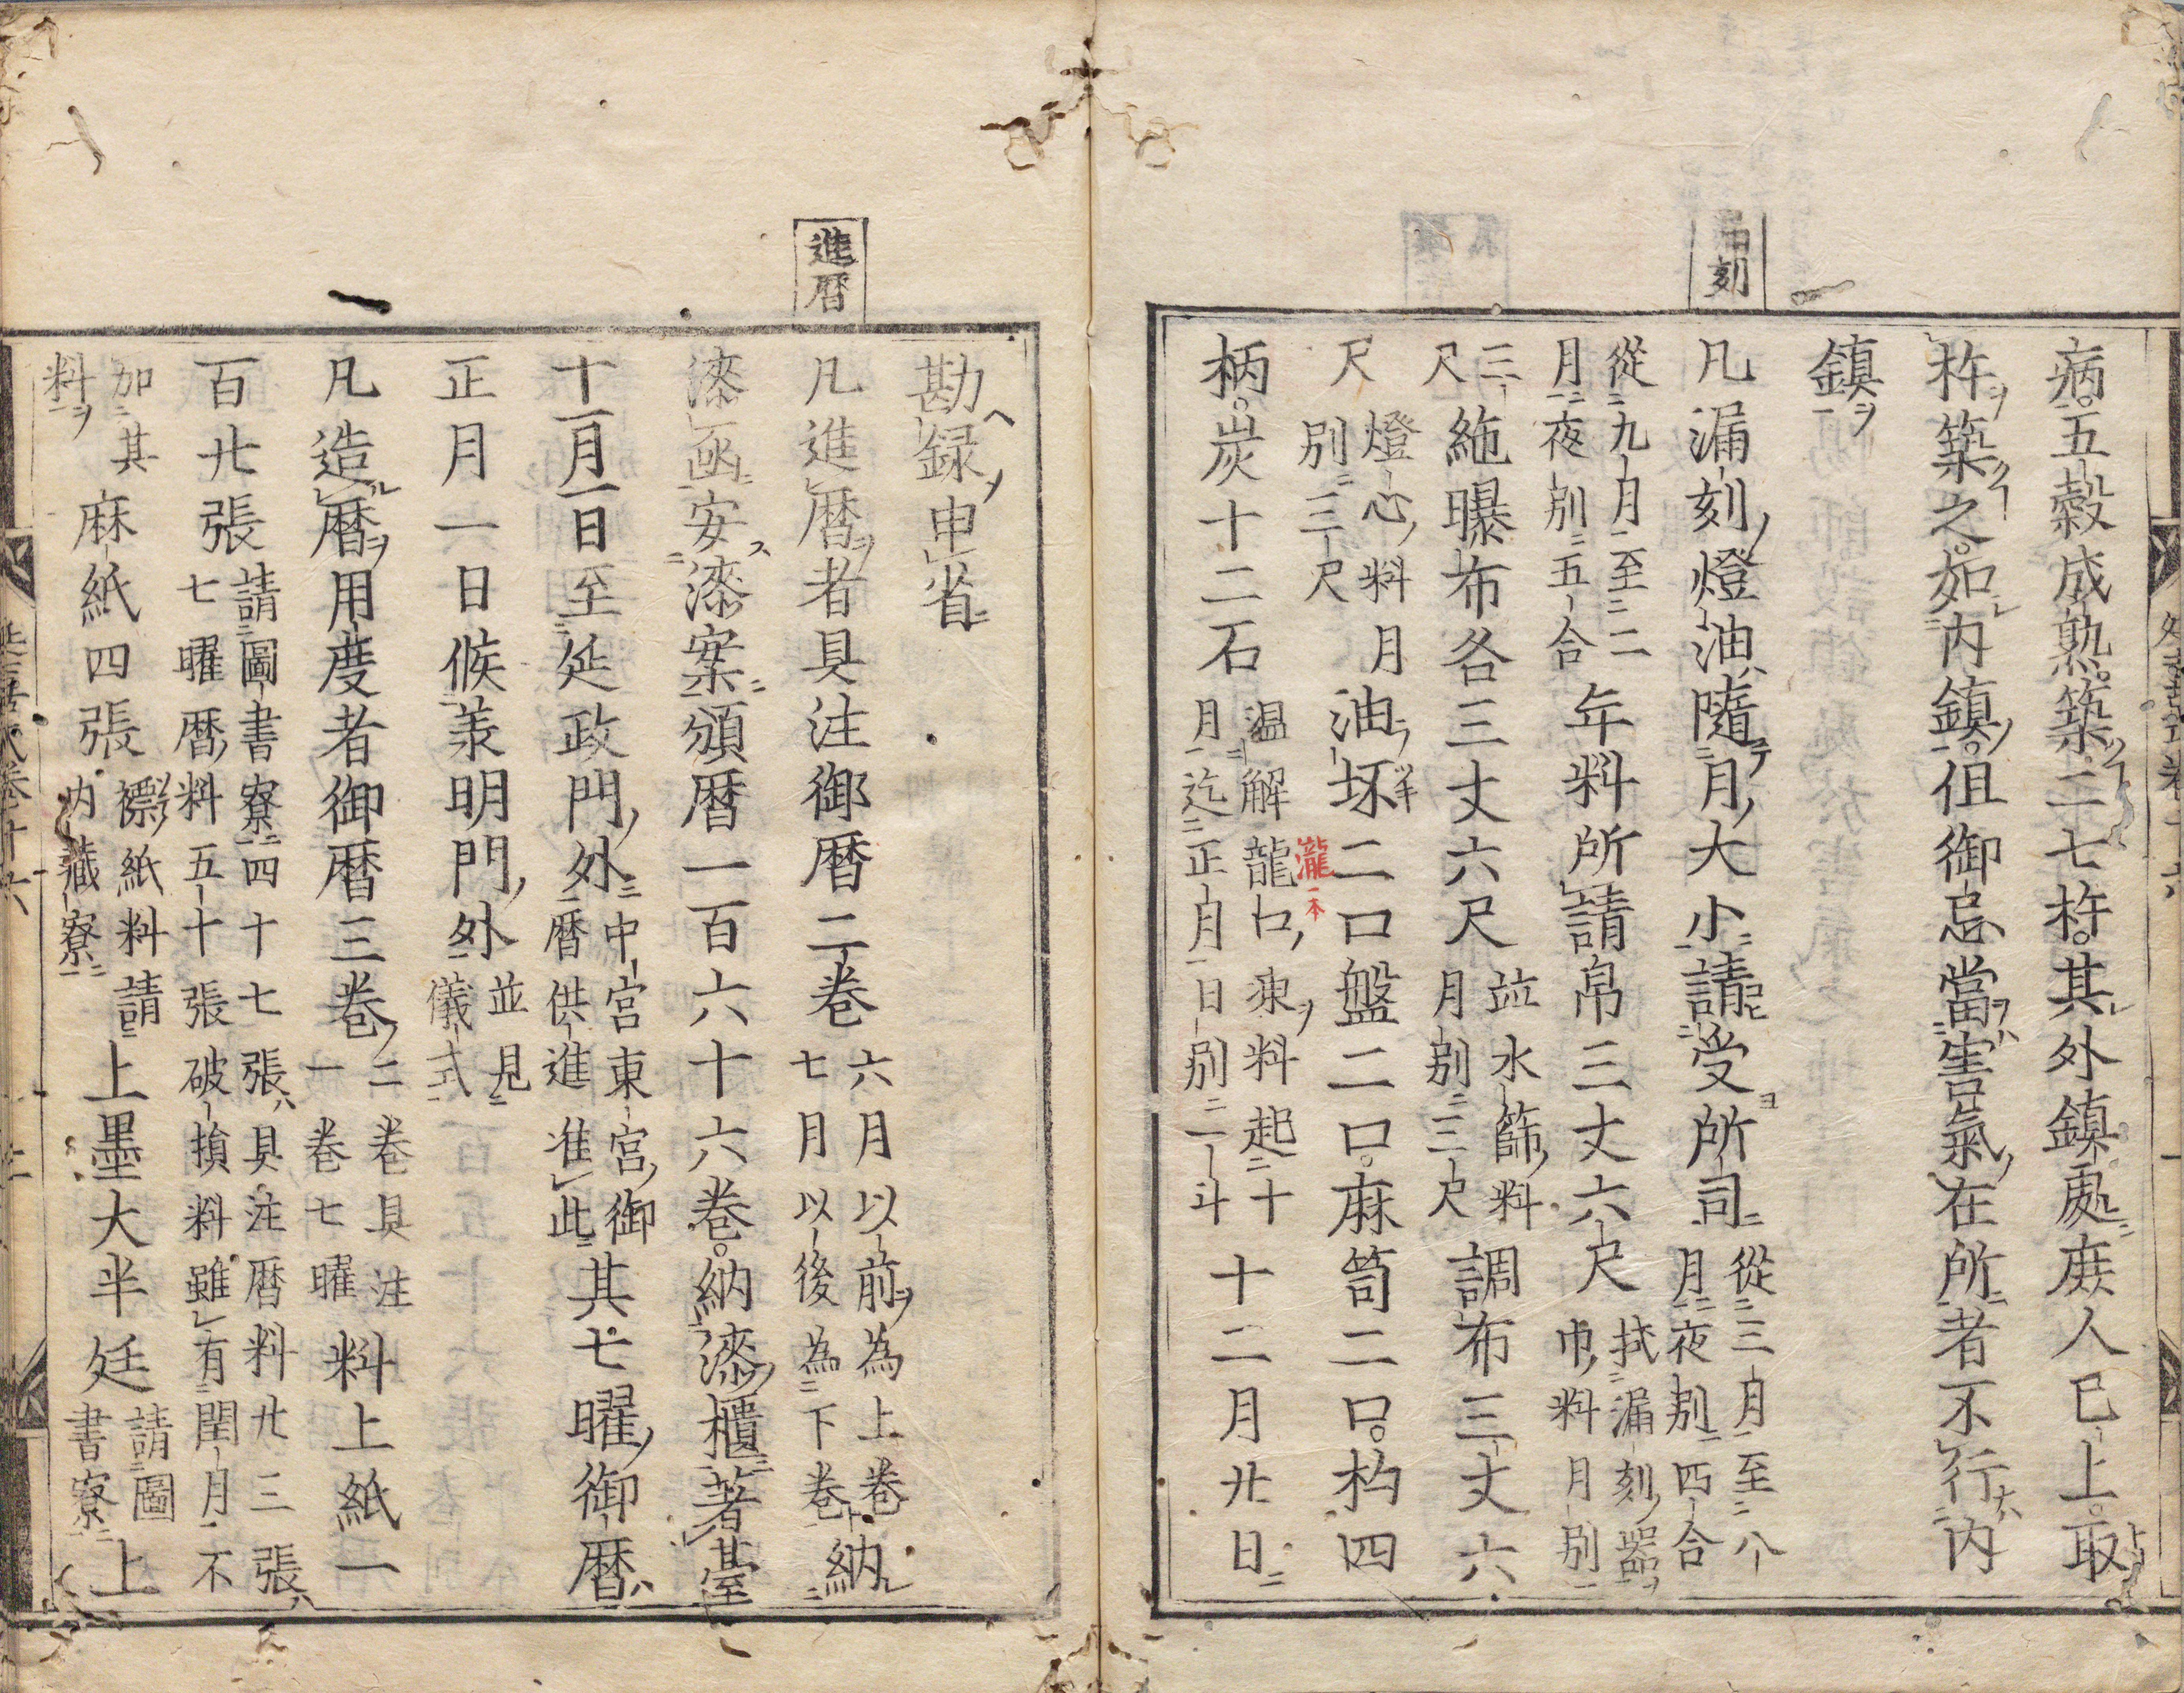 病五穀成熟築二七杵其外鎮處庶人已上取
杵築之如内鎮但御忌當害氣在所者不行内
鎮
刻
凡漏刻燈油隨月大小請受所司從三月至八月夜別四合
從九月至二月夜別五合年料所請帛三丈六尺拭漏刻器巾料月別
三尺絁曝布各三丈六尺並水篩料月別三尺調布三丈六
尺燈心料月別三尺油坏二口盤二口麻笥二口杓四
瀧一本
柄炭十二石温解龍口凍料起十月迄正月日別二斗十二月廿日
勘録申省
進暦
凡進暦者具注御暦二巻六月以前為上巻七月以後為下巻納
漆凾安漆案頒暦一百六十六巻納漆櫃著臺
十一月一日至延政門外中宮東宮御暦供進准此其七曜御暦
正月一日候羕明門外並見儀式
凡造暦用度者御暦三巻二巻具注一巻七曜料上紙一
百廿張請圖書寮四十七張具注暦料廿三張七曜暦料五十張破損料雖有閏月不
加其料麻紙四張褾紙料請内藏寮上墨大半廷請圖書寮上